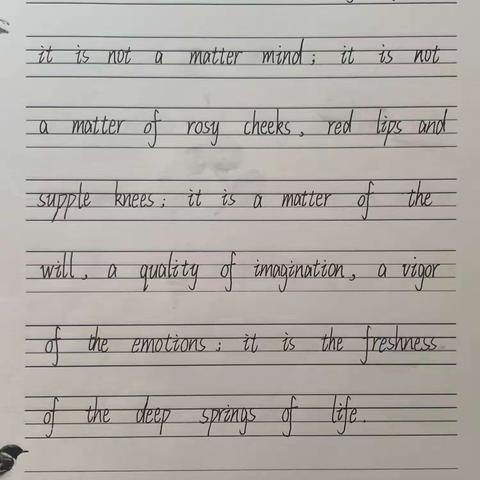 it is not a matter mind; it is not
a matter of rosy cheeks, red lips and
supple knees; it is a matter of the
will, a quality of imagination, a vigor
of the emotions; it is the freshness
of the deep springs of life.